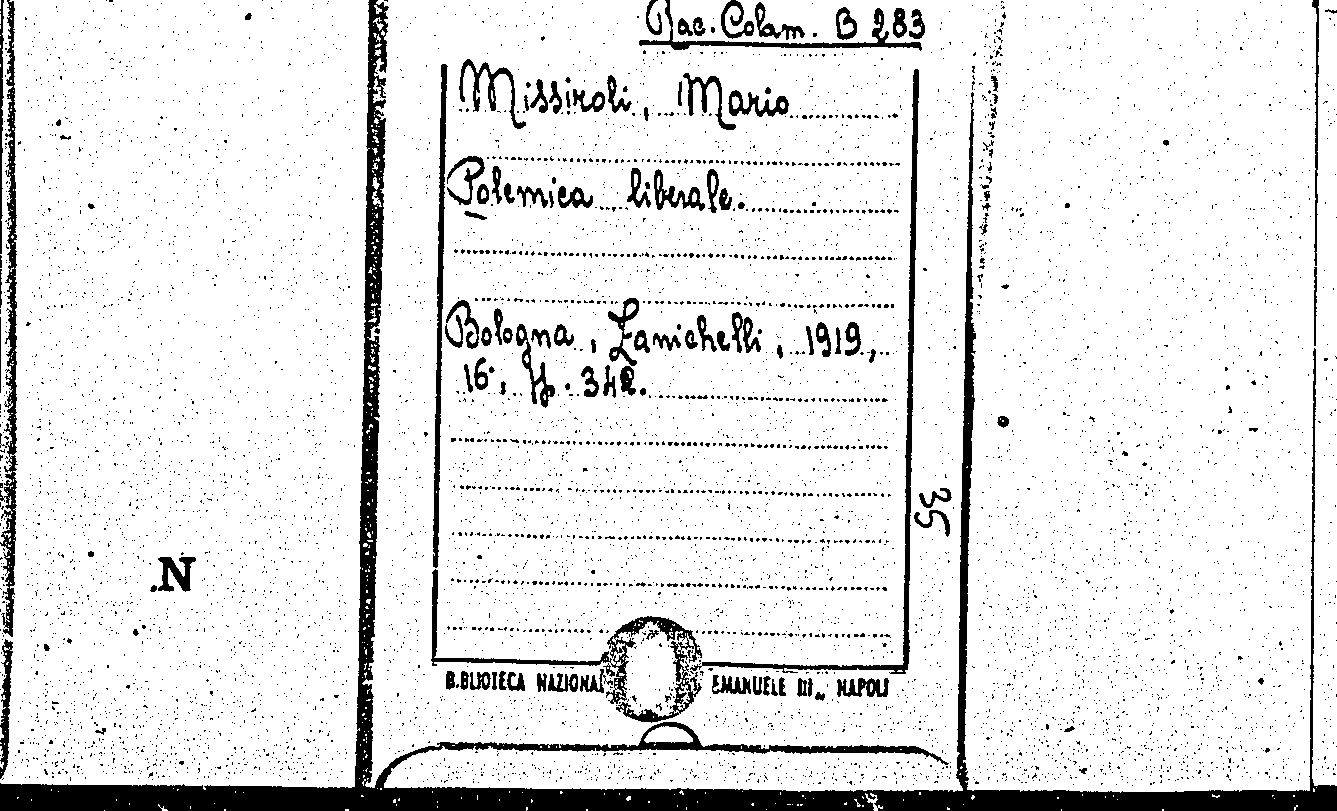 Rac. Colam. B 283
Missiroli, Mario
Polemica liberale.
Bologna, Zanichelli, 1919,
16°, pp. 342.
35
.N
B.BLIOTECA NAZIONAL EMANUELE III„ NAPOLI